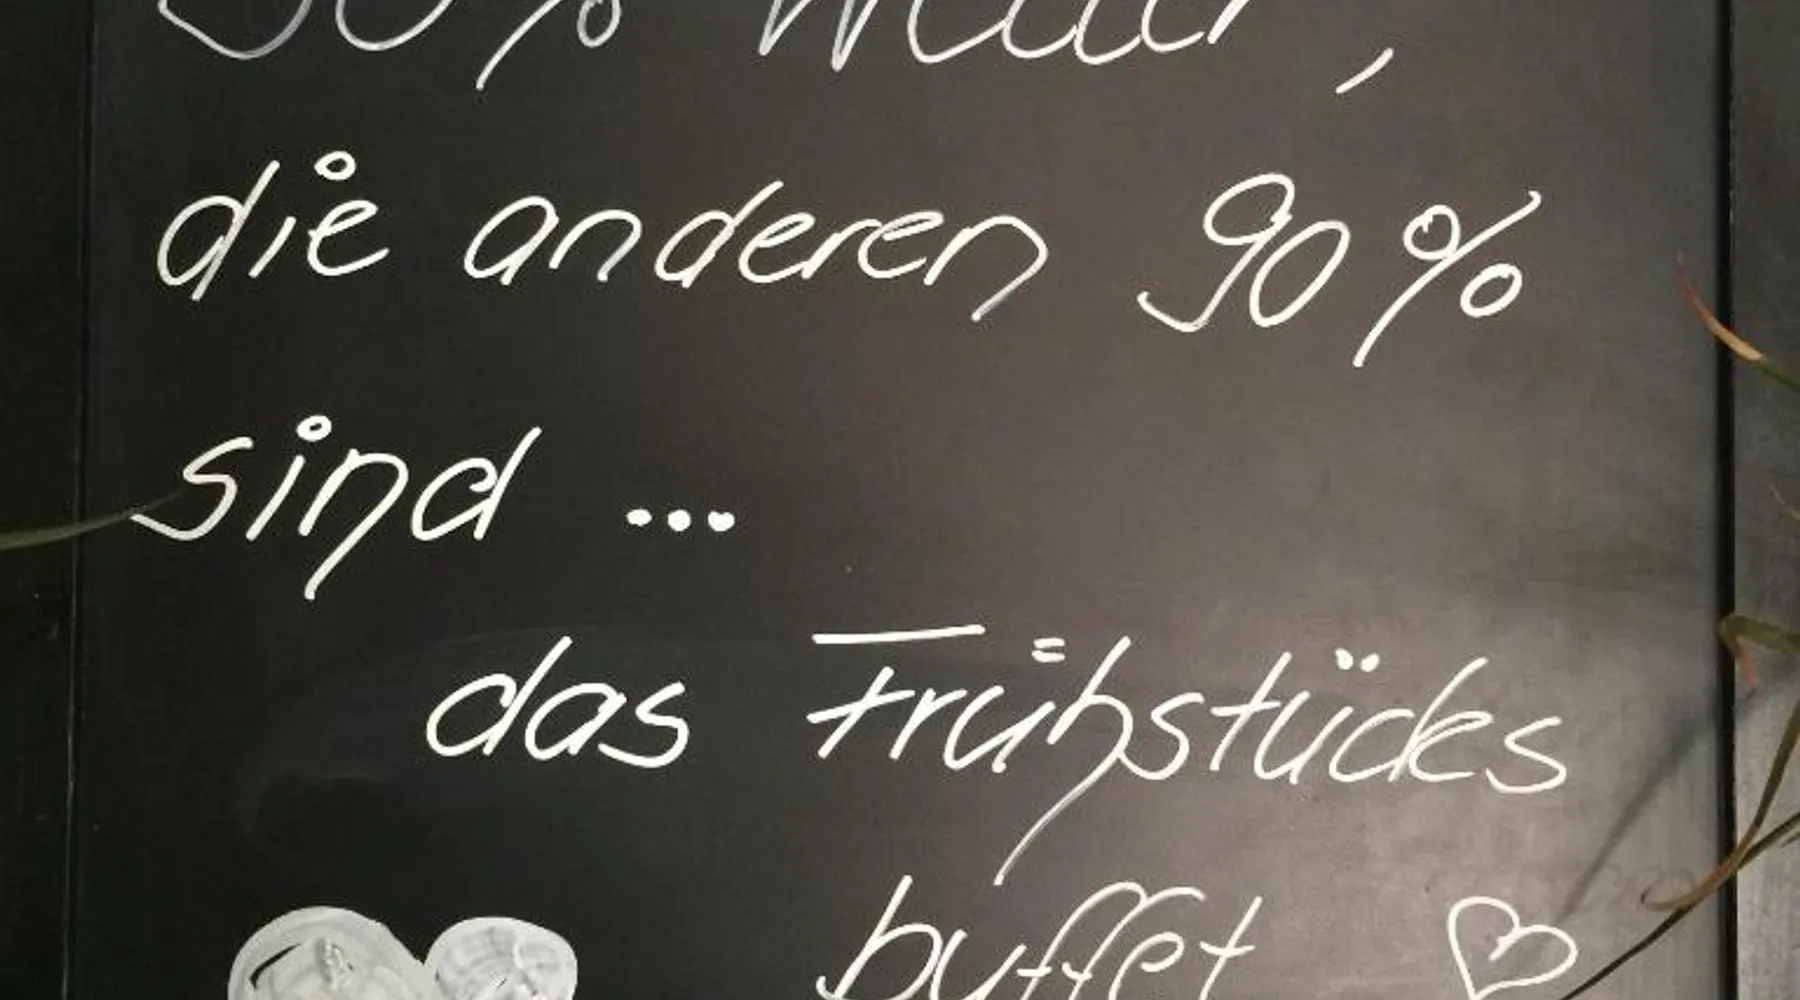 die anderen 90%
sind ...
das Frühstücks
buffet